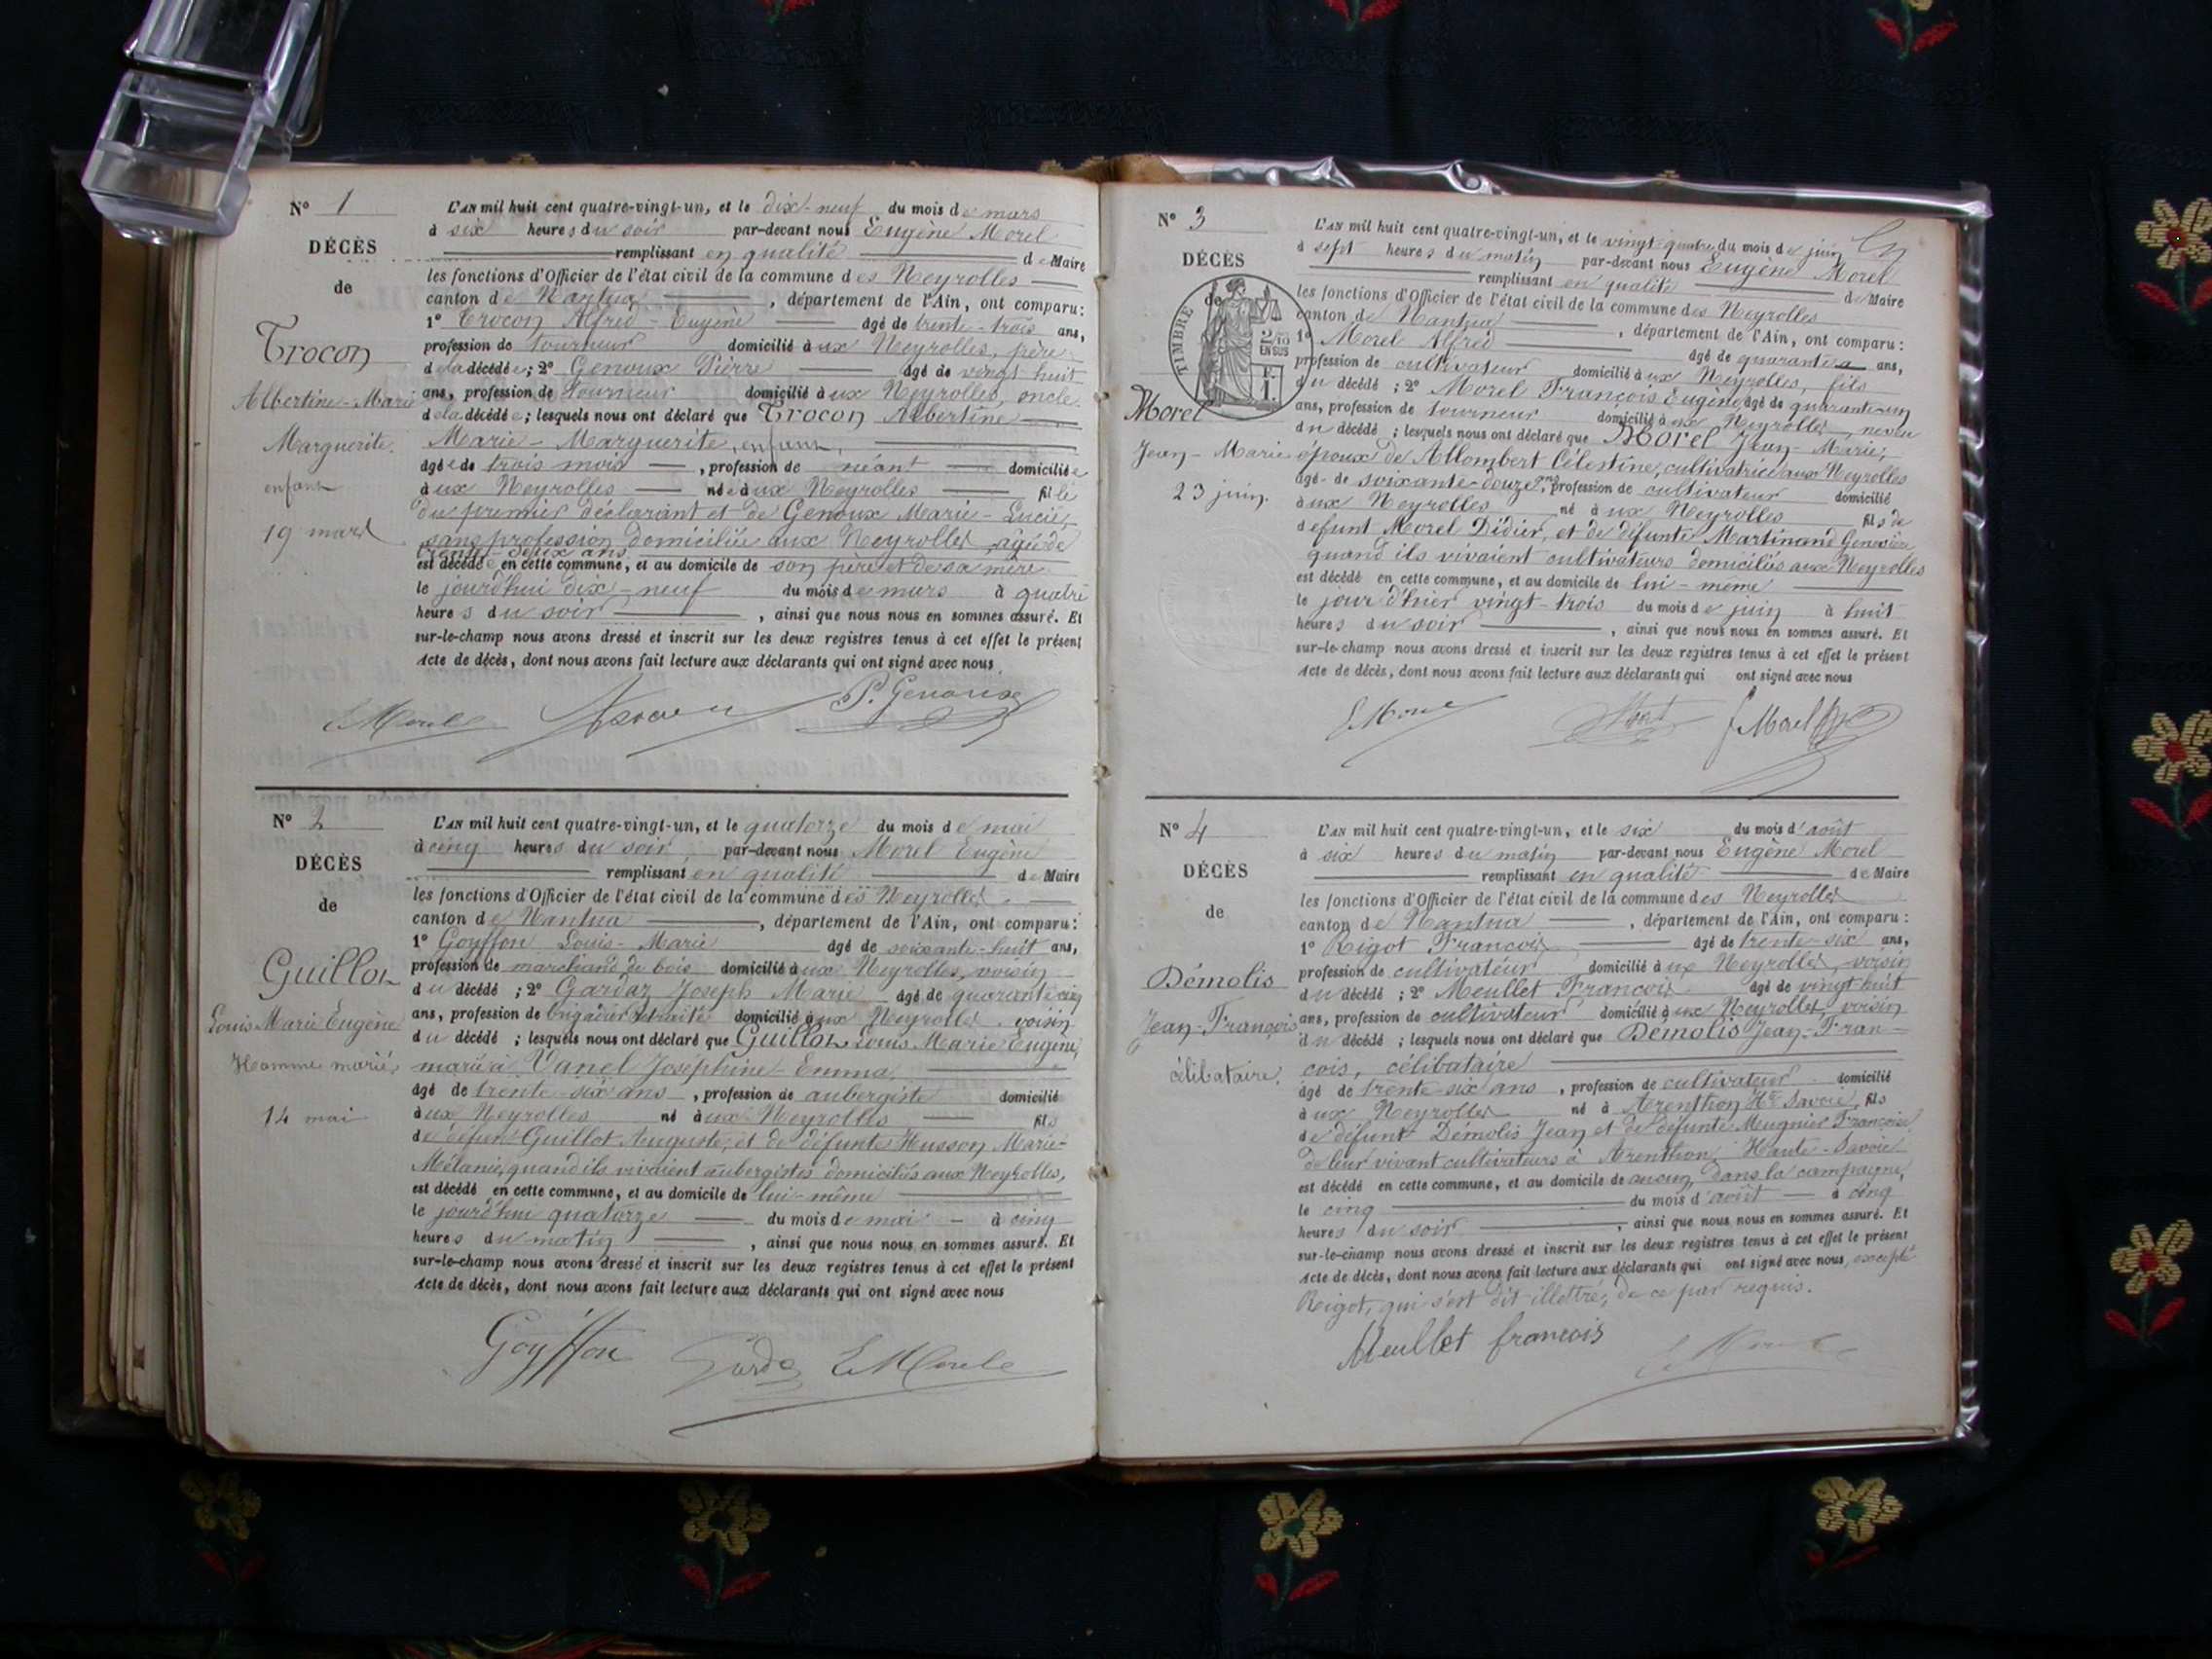 N° 1
DÉCÈS
de
Trocon
Albertine-Marie
Marguerite.
enfant
19 mars
L'AN mil huit cent quatre-vingt-un, et le dix-neuf du mois de mars
à six heures du soir par-devant nous Eugène Morel
remplissant en qualité de Maire
les fonctions d'Officier de l'état civil de la commune des Neyrolles
canton de Nantua, département de l'Ain, ont comparu:
1° Trocon Alfred-Eugène âgé de trente-trois ans,
profession de tourneur domicilié aux Neyrolles, père
de la décédée; 2° Genoux Pierre âgé de vingt-huit
ans, profession de tourneur domicilié aux Neyrolles, oncle
de la décédée; lesquels nous ont déclaré que Trocon Albertine
Marie-Marguerite, enfant,
âgée de trois mois, profession de néant domiciliée
aux Neyrolles née aux Neyrolles fille
du premier déclarant et de Genoux Marie-Lucie,
sans profession domiciliée aux Neyrolles, âgée de
trente-deux ans
est décédée en cette commune, et au domicile de son père et de sa mère
le jourd'hui dix-neuf du mois de mars à quatre
heures du soir, ainsi que nous nous en sommes assuré. Et
sur-le-champ nous avons dressé et inscrit sur les deux registres tenus à cet effet le présent
Acte de décès, dont nous avons fait lecture aux déclarants qui ont signé avec nous
P. Genoux
N° 2
DÉCÈS
de
Guillot
Louis Marie Eugène
Homme marié
14 mai
L'AN mil huit cent quatre-vingt-un, et le quatorze du mois de mai
à cinq heures du soir, par-devant nous Morel Eugène
remplissant en qualité de Maire
les fonctions d'Officier de l'état civil de la commune des Neyrolles
canton de Nantua, département de l'Ain, ont comparu:
1° Goyffon Louis-Marie âgé de soixante-huit ans,
profession de marchand de bois domicilié aux Neyrolles, voisin
du décédé; 2° Gardaz Joseph Marie âgé de quarante cinq
ans, profession de brigadier retraité domicilié aux Neyrolles, voisin
du décédé; lesquels nous ont déclaré que Guillot Louis Marie Eugène,
marié à Vanel Joséphine Emma
âgé de trente-six ans, profession de aubergiste domicilié
aux Neyrolles né aux Neyrolles fils
de défunt Guillot Auguste, et de défunte Husson Marie-
Mélanie, quand ils vivaient aubergistes domiciliés aux Neyrolles,
est décédé en cette commune, et au domicile de lui-même
le jourd'hui quatorze du mois de mai à cinq
heures du matin, ainsi que nous nous en sommes assuré. Et
sur-le-champ nous avons dressé et inscrit sur les deux registres tenus à cet effet le présent
Acte de décès, dont nous avons fait lecture aux déclarants qui ont signé avec nous
Goyffon
N° 3
DÉCÈS
de
TIMBRE
2/10
EN SUS
F.
1.
Morel
Jean-Marie
23 juin.
L'AN mil huit cent quatre-vingt-un, et le vingt-quatre du mois de juin
à sept heures du matin par-devant nous Eugène Morel
remplissant en qualité de Maire
les fonctions d'Officier de l'état civil de la commune des Neyrolles
canton de Nantua, département de l'Ain, ont comparu:
1° Morel Alfred âgé de quarante ans,
profession de cultivateur domicilié aux Neyrolles, fils
du décédé; 2° Morel François Eugène, âgé de quarante-un
ans, profession de tourneur domicilié aux Neyrolles, neveu
du décédé; lesquels nous ont déclaré que Morel Jean-Marie;
époux de Allombert Célestine, cultivatrice aux Neyrolles
âgé de soixante-douze ans, profession de cultivateur domicilié
aux Neyrolles né aux Neyrolles fils de
défunt Morel Didier, et de défunte Martinand Geneviève
quand ils vivaient cultivateurs domiciliés aux Neyrolles
est décédé en cette commune, et au domicile de lui-même
le jour d'hier vingt-trois du mois de juin à huit
heures du soir, ainsi que nous nous en sommes assuré. Et
sur-le-champ nous avons dressé et inscrit sur les deux registres tenus à cet effet le présent
Acte de décès, dont nous avons fait lecture aux déclarants qui ont signé avec nous
N° 4
DÉCÈS
de
Démolis
Jean-François
célibataire.
L'AN mil huit cent quatre-vingt-un, et le six du mois d'août
à six heures du matin par-devant nous Eugène Morel
remplissant en qualité de Maire
les fonctions d'Officier de l'état civil de la commune des Neyrolles
canton de Nantua, département de l'Ain, ont comparu:
1° Rigot François âgé de trente-six ans,
profession de cultivateur domicilié aux Neyrolles, voisin
du décédé; 2° Meullet François âgé de vingt-huit
ans, profession de cultivateur domicilié aux Neyrolles, voisin
du décédé; lesquels nous ont déclaré que Démolis Jean-Fran-
cois, célibataire
âgé de trente-six ans, profession de cultivateur domicilié
aux Neyrolles né à Arenthon Hte Savoie, fils
de défunt Démolis Jean et de défunte Meugnier Françoise
de leur vivant cultivateurs à Arenthon Haute-Savoie
est décédé en cette commune, et au domicile de aucun, dans la campagne,
le cinq du mois d'août à cinq
heures du soir, ainsi que nous nous en sommes assuré. Et
sur-le-champ nous avons dressé et inscrit sur les deux registres tenus à cet effet le présent
Acte de décès, dont nous avons fait lecture aux déclarants qui ont signé avec nous, excepté
Rigot, qui s'est dit illettré, de ce par requis.
Meullet francois